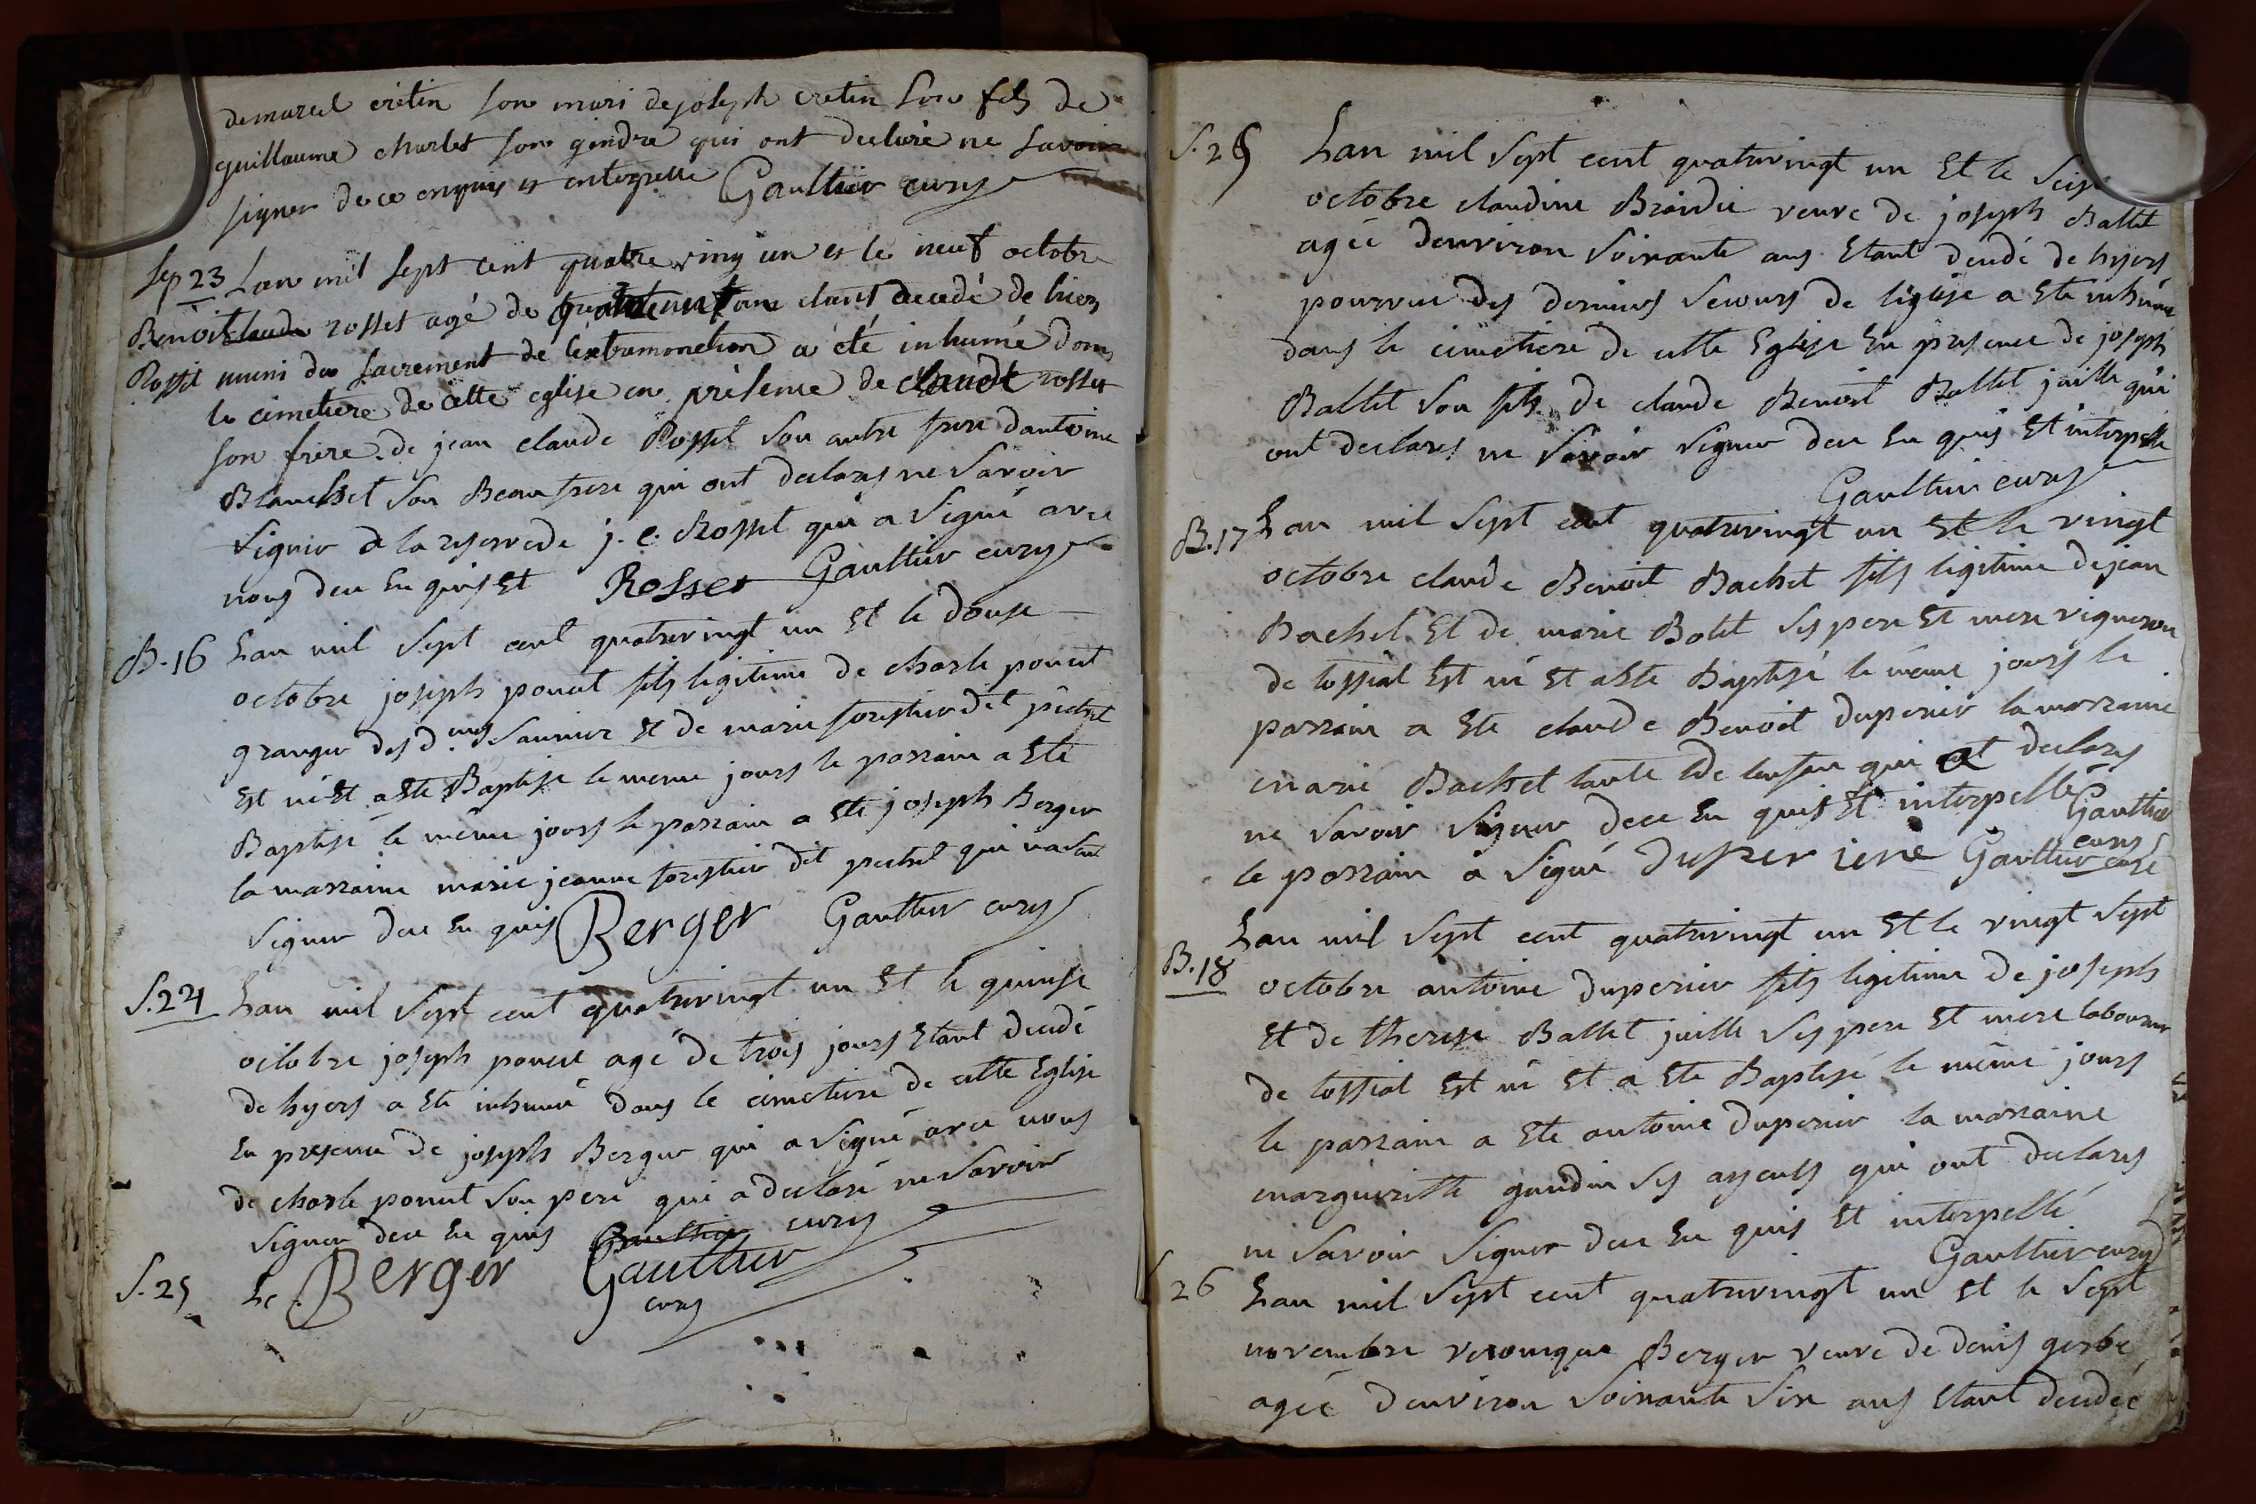 de marcel cretin son mari de joseph cretin son fils de
guillaume charlet son gendre qui ont declaré ne savoir
signer de ce enquis et interpellé Gaultier curé
Sep 23 Lan mil sept cent quatre ving un et le neuf octobre
Benoit rosset agé de ans etant decedé de hier
Rosset muni du sacrement de l'extremonction a été inhumé dans
le cimetiere de cette eglise en présence de claude rosset
son frere. de jean claude Rosset son autre frere dantoine
Blanchet son Beaufrere qui ont declarés ne savoir
signer a la reserve de j. c. Rosset qui a signé avec
nous dece En quis Et Rosset Gaultier curé
B. 16 Lan mil sept cent quatrevingt un Et le douse
octobre joseph poncet fils legitime de charle poncet
granger des d.elles saunier Et de marie forestier dit pechet
Est né Et a Eté Baptisé le meme jours le parrain a Eté
Baptisé le même jours le parrain a Eté joseph Berger
la marraine marie jeanne forestier dit pechet qui na sait
signer dece En quis Berger Gaultier curé
S. 24 Lan mil sept cent quatrevingt un Et le quinse
octobre joseph poncet agé de trois jours Etant decedé
de hyers a Eté inhumé dans le cimetiere de cette Eglise
En presence de joseph Berger qui a signé avec nous
de charle poncet son pere qui a declaré ne savoir
signer dece En quis Gaulthier curé
S. 25 Le Berger Gaultier
curé
S. 25 Lan mil sept cent quatrevingt un Et le
octobre claudine veuve de joseph Ballet
agée denviron soixante ans Etant decedé de hyers
pourvue des derniers secours de léglise a Eté inhumé
dans le cimetiere de cette Eglise En presence de joseph
Ballet son fils de claude Benoit Ballet juille qui
ont declarés ne savoir signer dece En quis Et interpellé
Gaultier curé
B. 17 Lan mil sept cent quatrevingt un Et le vingt
octobre claude Benoit Bachet fils legitime de jean
Bachet Et de marie Bolet ses pere Et mere vigneron
de lossiat Est né Et a Eté Baptisé le même jours le
parrain a Eté claude Benoit duperier la marraine
marie Bachet tante de lenfan qui at declarés
ne savoir signer dece En quis Et interpellé Gaultier
curé
le parrain a signé Gaultier curé
B. 18 Lan mil sept cent quatrevingt un Et le vingt sept
octobre antoine duperier fils legitime de joseph
Et de therese Ballet juille ses pere Et mere laboureur
de lossiat Est né Et a Eté Baptisé le même jours
le parrain a Eté antoine duperier la marraine
margueritte gaudin ses ayeuls qui ont declarés
ne savoir signer dece En quis Et interpellé
Gaultier curé
S 26 Lan mil sept cent quatrevingt un Et le sept
novembre veronique Berger veuve de denis gerbe
agée denviron soixante six ans Etant decedée